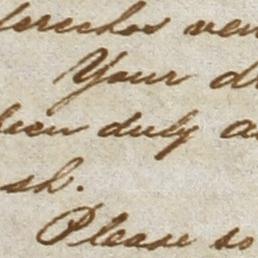 derechos ven
Your d
been duly a
sh.
Please so